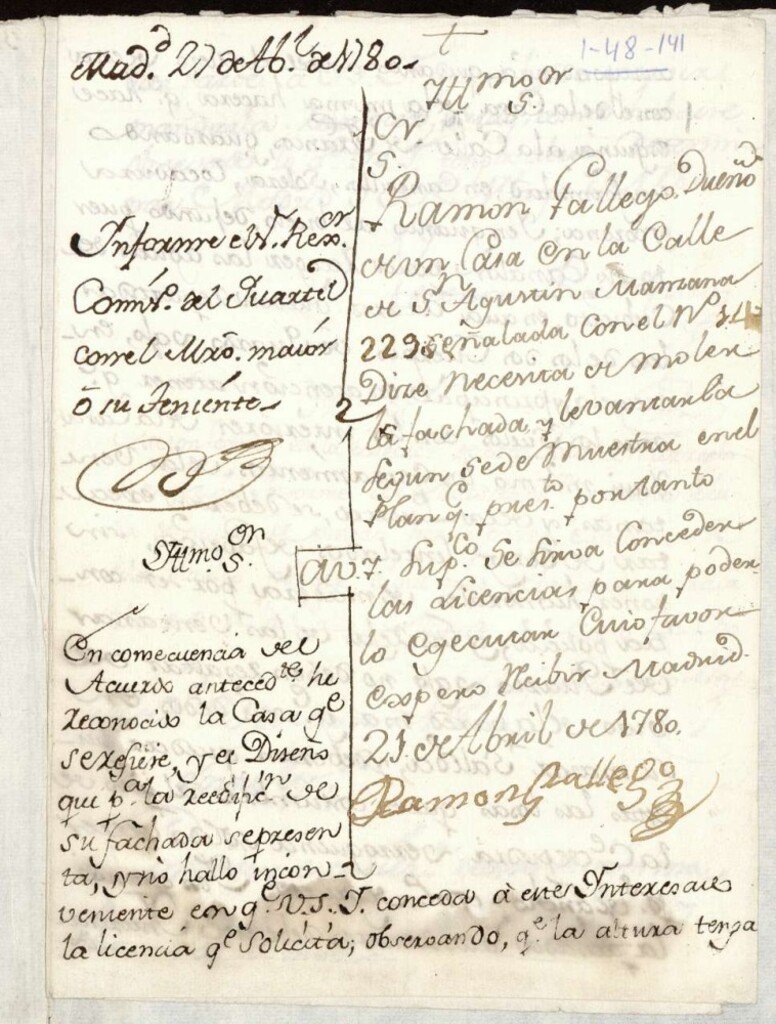 1-48-141
Mad.d 27 de Ab.l de 1780.
Informe el S.r Rex.or
Comis.o del Quartel
con el Mro. maior
ó su Teniente
Yttmo Sor
En consecuencia del
Acuerdo anteced.te he
reconocido la Casa q.e
se refiere, y el Diseño
que p.a la reedific.n de
su fachada se presen
ta, y no hallo incon-
veniente en q.e V.S.Y. conceda à este Interesado
la licencia q.e solicita; observando, q.e la altura tenga
Yttmo Sor
Sor
Ramon Gallego Dueño
de un Casa en la Calle
de Sn Agustin Manzana
229 señalada con el No 14
Dize Necesita de moler
la fachada y levantarla
segun se de Muestra en el
Plan q.e pres.to por tanto
A V.Y. Sup.co Se sirva Conceder
las Licencias para poder
lo egecutar Cuio favor
espero Rebibir Madrid
21 de Abril de 1780.
Ramon Gallego